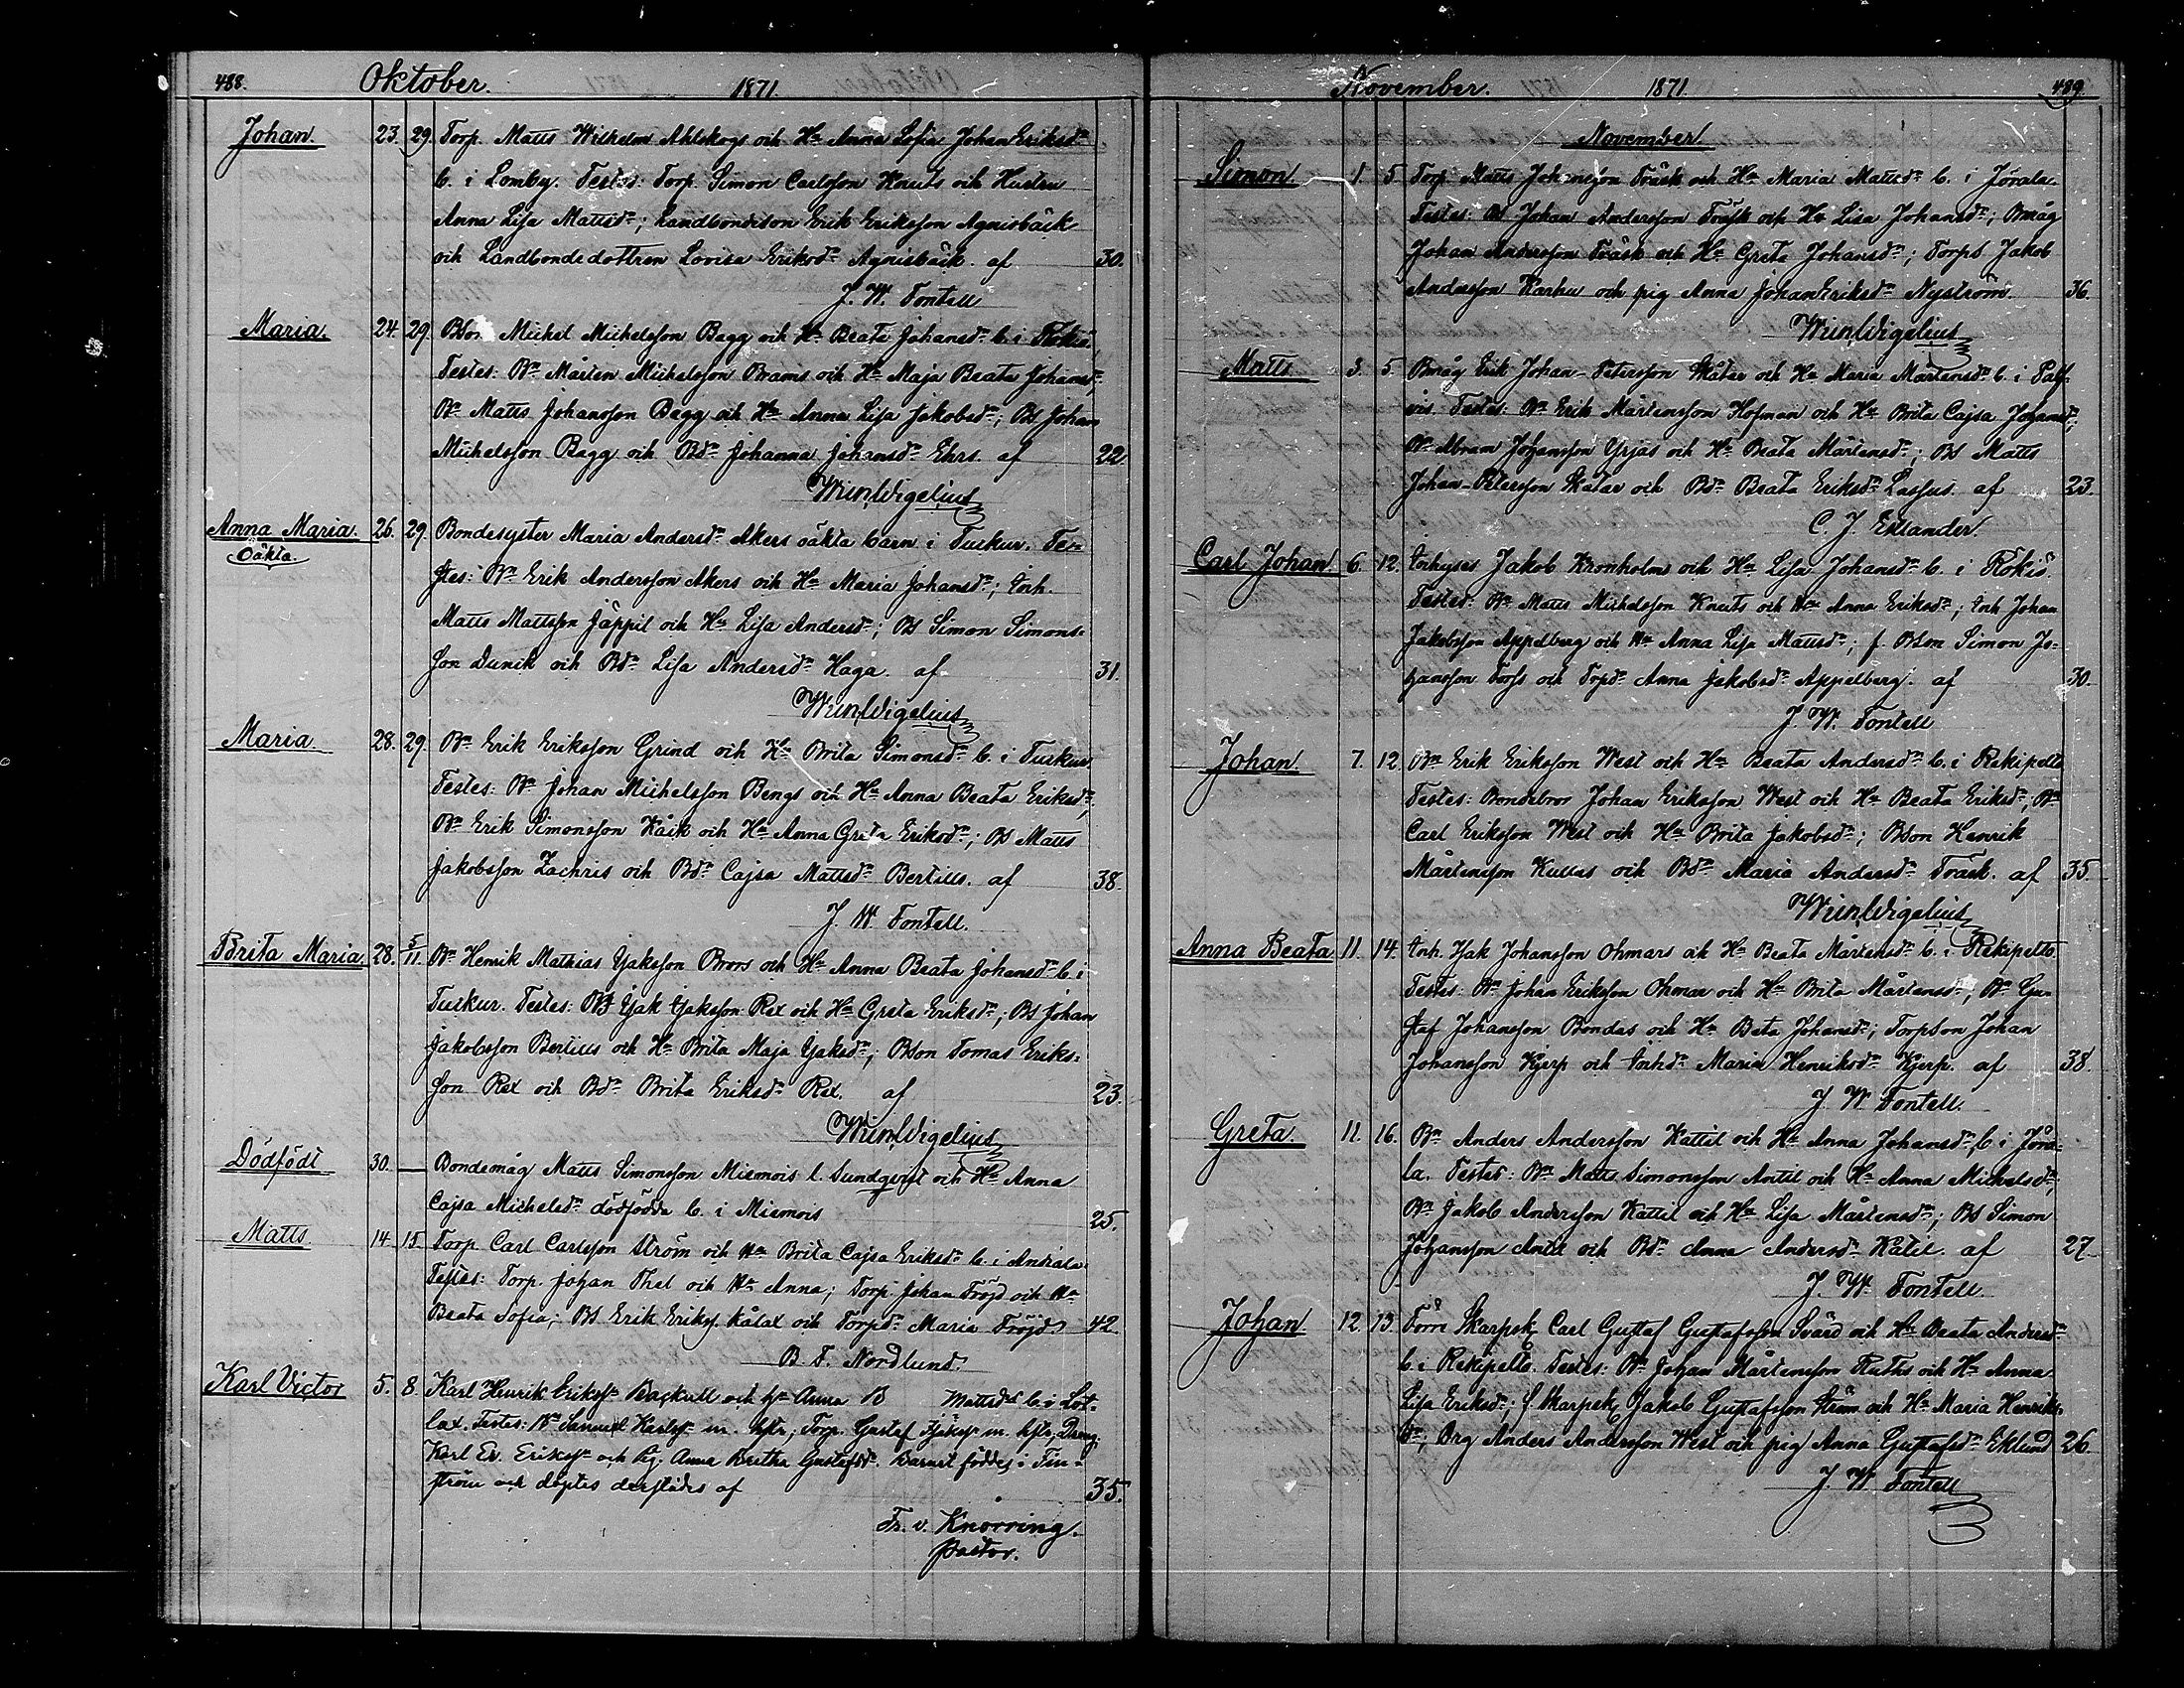 488. Oktober. 1871.
Johan. 23. 29. Torp. Matts Wilhelm Ahlskogs och Hu Anna Sofia JohanEriksdr
b. i Lomby. Testes: Torp. Simon Carlsson Knuts och Hustru
Anna Lisa Mattsdr; Landbondeson Erik Eriksson Agnisbäck
och Landbondedottren Lovisa Eriksdr Agnisbäck. af 30.
J. W. Fontell
Maria. 24. 29. Bson Michel Michelsson Bagg och Hu Beata Johansdr b. i Rökiö.
Testes: Bn Mårten Michelsson Brams och Hu Maja Beata Johansdr;
Bn Matts Johansson Bagg och Hu Anna Lisa Jakobsdr; BS Johan
Michelsson Bagg och Bdr Johanna Johansdr Ehrs. af 22
Wm Wigelius
Anna Maria. 26. 29. Bondesyster Maria Andersdr Akers oäkta barn i Tuckur. Te=
Oäkta.
stes: Bn Erik Andersson Akers och Hu Maria Johansdr; Inh.
Matts Mattsson Jäppil och Hu Lisa Andersdr; BS Simon Simons=
son Dunik och Bdr Lisa Andersdr Haga. af 31.
Wm Wigelius
Maria. 28. 29. Bn Erik Eriksson Grind och Hu Brita Simonsdr b. i Tuckur
Testes: Bn Johan Michelsson Bengs och Hu Anna Beata Eriksdr;
Bn Erik Simonsson Kåik och Hu Anna Greta Eriksdr; BS Matts
Jakobsson Zachris och Bdr Cajsa Mattsdr Bertills. af 38.
J. W. Fontell.
Brita Maria 28. 5/11. Bn Henrik Mathias Isaksson Brors och Hu Anna Beata Johansdr b. i
Tuckur. Testes: BS Isak Isaksson Rex och Hu Greta Eriksdr; BS Johan
Jakobsson Bertills och Hu Brita Maja Isaksdr; BSon Tomas Eriks=
son Rex och Bdr Brita Eriksdr Rex. af 23.
Wm Wigelius
Dödfödt 30. — Bondemåg Matts Simonsson Miemois l. Sundqvist och Hu Anna
Cajsa Michelsdr dödfödda b. i Miemois 25.
Matts 14 15. Torp Carl Carlsson Ström och Hu Brita Cajsa Eriksdr b. i Andiala.
Testes: Torp. Johan Thel och Hu Anna; Torp. Johan Fröjd och Hu
Beata Sofia; BS Erik Eriks. Kålax och Torpdr Maria Fröjd 42.
B. F. Nordlund.
Karl Victor 5. 8. Karl Henrik Erikss Backull och Hu Anna B Mattsdr b. i Lot-
lax. Testes: Bn Samuel Karlss m. hstr; Torp. Gustaf m. hstr; Dreng.
Karl Er. Erikss och Pig. Anna Gretha Gustafsdr. Barnet föddes i Fin-
ström och döptes derstädes af 35.
Fr. v. Knorring.
Pastor.
November. 1871. 489.
November.
Simon 1. 5 Torp Matts Johansson Träsk och Hu Maria Mattsdr b. i Jörala.
Testes: BS Johan Andersson Träsk och Hu Lisa Johansdr; Bmåg
Johan Andersson Träsk och Hu Greta Johansdr; TorpS Jakob
Andersson Karhu och pig Anna JohanEriksdr Nyström. 36.
Wm Wigelius
Matts 3. 5. Bmåg Erik Johan-Petersson Skatar och Hu Maria Mårtensdr b. i Palf-
vis. Testes: Bn Erik Mårtensson Hofman och Hu Brita Cajsa Johansdr;
Bn Abram Johansson Yrjas och Hu Beata Mårtensdr; BS Matts
Johan-Petersson Skatar och Bdr Beata Eriksdr Lassus. af 23.
C. J. Estlander.
Carl Johan 6. 12. Inhyses Jakob Kronholms och Hu Lisa Johansdr b. i Rökiö.
Testes: Bn Matts Michelsson Knuts och Hu Anna Eriksdr; Inh Johan
Jakobsson Appelberg och Hu Anna Lisa Mattsdr; f. BSon Simon Jo=
hansson Forss och Torpdr Anna Jakobsdr Appelberg. af 30.
J. W. Fontell
Johan 7. 12. Bn Erik Eriksson West och Hu Beata Andersdr b. i Rekipelto
Testes: Bondebror Johan Eriksson West och Hu Beata Eriksdr; Bn
Carl Eriksson West och Hu Brita Jakobsdr; BSon Henrik
Mårtensson Kullas och Bdr Maria Andersdr Träsk. af 35.
Wm Wigelius
Anna Beata 11. 14. Inh. Isak Johansson Ohmars och Hu Beata Mårtensdr b. i Rekipelto
Testes: Bn Johan Eriksson Ohmar och Hu Brita Mårtensdr; Bn Gu=
staf Johansson Bondas och Hu Beta Johansdr; TorpSon Johan
Johansson Kjerp och Inhdr Maria Henriksdr Kjerp. af 38.
J W Fontell.
Greta. 11. 16. Bn Anders Andersson Kattil och Hu Anna Johansdr b i Jöra=
la. Testes: Bn Matts Simonsson Antil och Hu Anna Michelsdr;
Bn Jakob Andersson Kattil och Hu Lisa Mårtensdr; BS Simon
Johansson Antil och Bdr Anna Andersdr Katil. af 27
J. W. Fontell
Johan 12. 13 Förre Skarpsk. Carl Gustaf Gustafsson Svärd och Hu Beata Andersdr
b. i Rekipelto. Testes: Bn Johan Mårtensson Ruths och Hu Anna
Lisa Eriksdr; f Skarpsk. Jakob Gustafsson Ström och Hu Maria Henriks-
dr; Drg Anders Andersson West och pig Anna Gustafsdr Eklund 26
J. W Fontell